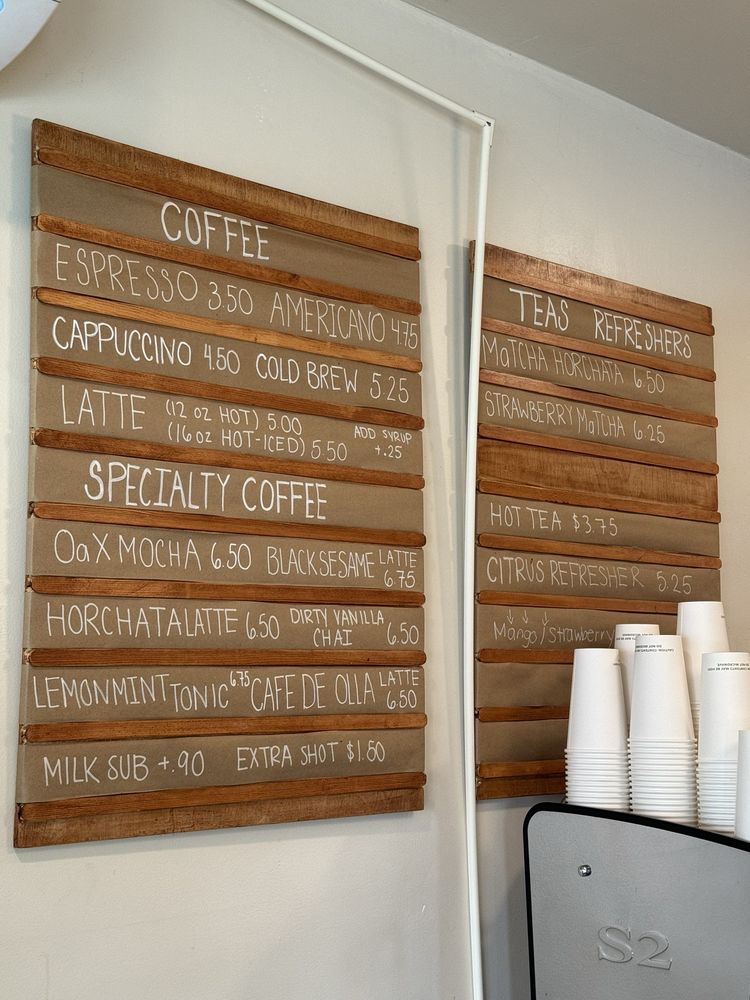 COFFEE
ESPRESSO 3.50 AMERICANO 4.75
CAPPUCCINO 4.50 COLD BREW 5.25
LATTE (12 oz HOT) 5.00
(16 oz HOT-ICED) 5.50
ADD SYRUP
+.25
SPECIALTY COFFEE
OaX MOCHA 6.50 BLACK SESAME LATTE 6.75
HORCHATA LATTE 6.50 DIRTY VANILLA CHAI 6.50
LEMON MINT TONIC 6.75 CAFE DE OLLA LATTE 6.50
MILK SUB +.90 EXTRA SHOT $1.50
TEAS REFRESHERS
MaTCHA HORCHATA 6.50
STRAWBERRY MaTCHA 6.25
HOT TEA $3.75
CITRUS REFRESHER 5.25
↓ ↓ ↓
Mango/strawberry
S2